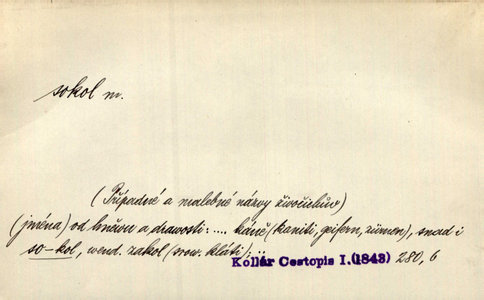 sokol m.
(Případné a malebné názvy živočichůw)
(jména) od hněwu a drawosti: .... káně (kaniti, geifern, zürnen), snad i
so-kol, wend. zakol (srow. kláti);..
Kollár Cestopis I.(1843) 280, 6